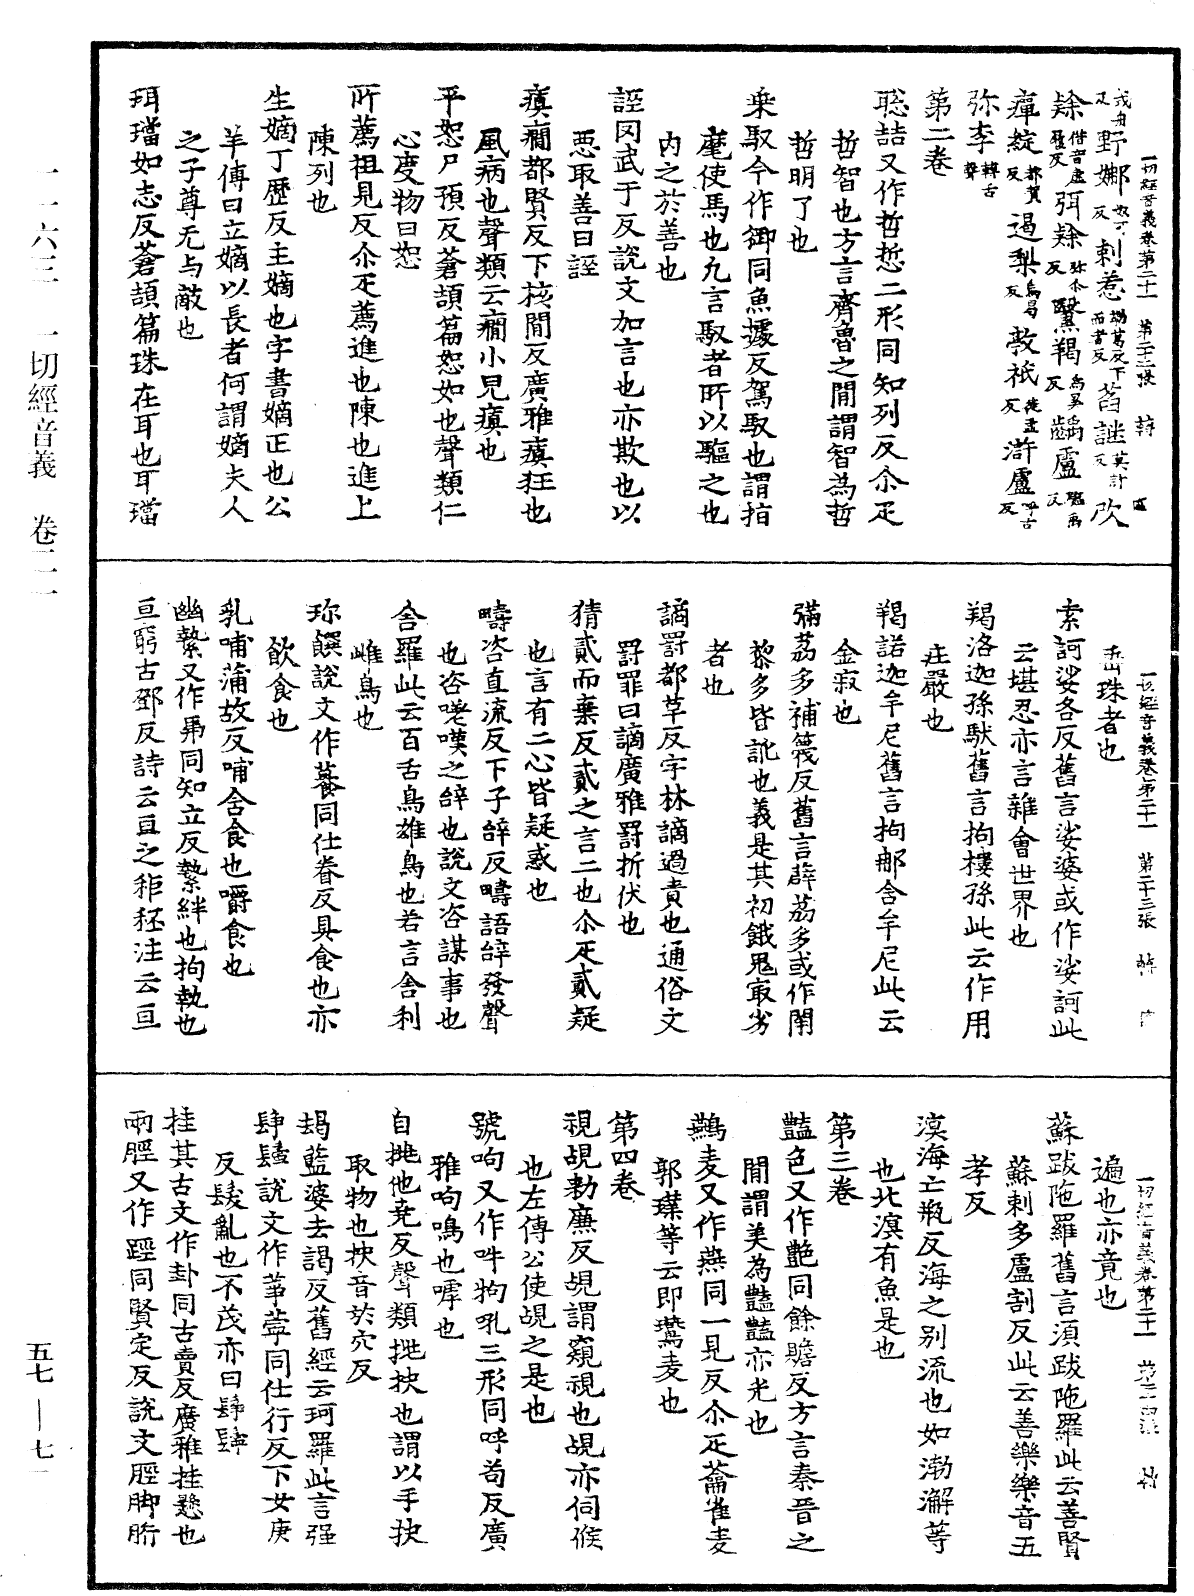 一切經音義卷第二十一 第二十二張
戎舟反野娜奴可反剌惹勒葛反下而者反茖謎莫計反欦
㱟借音虛履反弭㱟弥尒反瞖羯烏奚反齲盧驅禹反
癉綻都賀反遏梨烏曷反敎祇徒盍反滸盧呼古反
弥李轉舌聲
第二卷
聡喆又作哲悊二形同知列反尒疋
哲智也方言齊魯之間謂智為哲
哲明了也
乗馭今作御同魚據反駕馭也謂指
麾使馬也凡言馭者所以驅之也
内之於善也
誣罔武于反說文加言也亦欺也以
惡取善曰誣
瘨癇都賢反下核間反廣雅瘨狂也
風病也聲類云癇小兒瘨也
平恕尸預反蒼頡篇恕如也聲類仁
心度物曰恕
所薦祖見反尒疋薦進也陳也進上
陳列也
生嫡丁歷反主嫡也字書嫡正也公
羊傅曰立嫡以長者何謂嫡夫人
之子尊无与敵也
珥璫如志反蒼頡篇珠在耳也耳璫
一切經音義卷第二十一 第二十三張
珠者也
索訶娑各反舊言娑婆或作娑訶此
云堪忍亦言雜會世界也
羯洛迦孫馱舊言拘樓孫此云作用
莊嚴也
羯諾迦牟尼舊言拘那含牟尼此云
金寂也
彌荔多補篾反舊言薜荔多或作閇
黎多皆訛也義是其初餓鬼最劣
者也
謫罰都革反字林謫過責也通俗文
罸罪曰謫廣雅罸折伏也
猜貳而棄反貳之言二也尒疋貳疑
也言有二心皆疑惑也
疇咨直流反下子辝反疇語辝發聲
也咨嗟嘆之辝也說文咨謀事也
舍羅此云百舌鳥雄鳥也若言舍利
雌鳥也
珎饌說文作籑同仕眷反具食也亦
飲食也
乳哺蒲故反哺含食也嚼食也
幽縶又作馽同知立反縶絆也拘執也
亘窮古鄧反詩云亘之秬秠注云亘
一切經音義卷第二十一 第二十四張
遍也亦竟也
蘇跋陁羅舊言須跋陁羅此云善賢
蘇剌多盧割反此云善樂樂音五
孝反
溟海亡瓶反海之别流也如渤澥等
也北溟有魚是也
第三卷
豔色又作艷同餘贍反方言秦晉之
間謂美為豔豔亦光也
鷰麦又作燕同一見反尒疋蘥雀麦
郭璞等云即鷰麦也
第四卷
視覘勑廉反覘謂窺視也覘亦伺候
也左傅公使覘之是也
號呴又作吽狗吼三形同呼苟反廣
雅呴鳴也嘷也
自挑他尭反聲類挑抉也謂以手抉
取物也抉音於穴反
朅藍婆去謁反舊經云珂羅此言强
肆鬤說文作䔞薴同仕行反下女庚
反鬤亂也不茂亦曰肆肆
挂其古文作卦同古賣反廣雅挂懸也
兩脛又作踁同賢定反說文脛脚胻
一一六三 一切經音義 卷二一
五七—七一